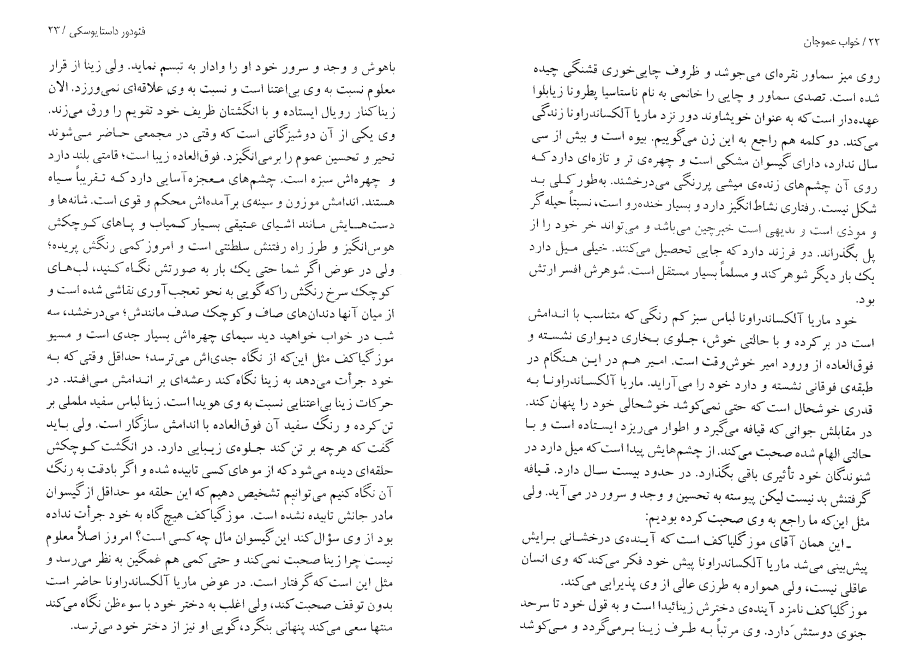 ۲۲ / خواب عموجان
روی میز سماور نقره‌ای می‌جوشد و ظروف چایی‌خوری قشنگی چیده
شده است. تصدی سماور و چایی را خانمی به نام ناستاسیا پطرونا زیابلوا
عهده‌دار است که به عنوان خویشاوند دور نزد ماریا آلکساندراونا زندگی
می‌کند. دو کلمه هم راجع به این زن می‌گوییم. بیوه است و بیش از سی
سال ندارد، دارای گیسوان مشکی است و چهره‌ی تر و تازه‌ای دارد که
روی آن چشم‌های زنده‌ی میشی پررنگی می‌درخشند. به‌طور کلی بد
شکل نیست. رفتاری نشاط‌انگیز دارد و بسیار خنده‌رو است، نسبتاً حیله‌گر
و موذی است و بدیهی است خبرچین می‌باشد و می‌تواند خر خود را از
پل بگذراند. دو فرزند دارد که جایی تحصیل می‌کنند. خیلی میل دارد
یک بار دیگر شوهر کند و مسلماً بسیار مستقل است. شوهرش افسر ارتش
بود.
خود ماریا آلکساندراونا لباس سبز کم رنگی که متناسب با اندامش
است در بر کرده و با حالتی خوش، جلوی بخاری دیواری نشسته و
فوق‌العاده از ورود امیر خوش‌وقت است. امیر هم در این هنگام در
طبقه‌ی فوقانی نشسته و دارد خود را می‌آراید. ماریا آلکساندراونا به
قدری خوشحال است که حتی نمی‌کوشد خوشحالی خود را پنهان کند.
در مقابلش جوانی که قیافه می‌گیرد و اطوار می‌ریزد ایستاده است و با
حالتی الهام شده صحبت می‌کند. از چشم‌هایش پیدا است که میل دارد در
شنوندگان خود تأثیری باقی بگذارد. در حدود بیست سال دارد. قیافه
گرفتنش بد نیست لیکن پیوسته به تحسین و وجد و سرور در می‌آید. ولی
مثل این‌که ما راجع به وی صحبت کرده بودیم:
ـ این همان آقای موزگلیاکف است که آینده‌ی درخشانی برایش
پیش‌بینی می‌شد ماریا آلکساندراونا پیش خود فکر می‌کند که وی انسان
عاقلی نیست، ولی همواره به طرزی عالی از وی پذیرایی می‌کند.
موزگلیاکف نامزد آینده‌ی دخترش زینائیدا است و به قول خود تا سرحد
جنوی دوستش دارد. وی مرتباً به طرف زینا برمی‌گردد و می‌کوشد
فئودور داستایوسکی / ۲۳
باهوش و وجد و سرور خود او را وادار به تبسم نماید. ولی زینا از قرار
معلوم نسبت به وی بی‌اعتنا است و نسبت به وی علاقه‌ای نمی‌ورزد. الان
زینا کنار رویال ایستاده و با انگشتان ظریف خود تقویم را ورق می‌زند.
وی یکی از آن دوشیزگانی است که وقتی در مجمعی حاضر می‌شوند
تحیر و تحسین عموم را برمی‌انگیزد. فوق‌العاده زیبا است؛ قامتی بلند دارد
و چهره‌اش سبزه است. چشم‌های معجزه‌آسایی دارد که تقریباً سیاه
هستند. اندامش موزون و سینه‌ی برآمده‌اش محکم و قوی است. شانه‌ها و
دست‌هسایش مانند اشیای عتیقی بسیار کمیاب و پاهای کوچکش
هوس‌انگیز و طرز راه رفتنش سلطنتی است و امروز کمی رنگش پریده؛
ولی در عوض اگر شما حتی یک بار به صورتش نگاه کنید، لب‌های
کوچک سرخ رنگش را که گویی به نحو تعجب‌آوری نقاشی شده است و
از میان آنها دندان‌های صاف و کوچک صدف مانندش؛ می‌درخشد، سه
شب در خواب خواهید دید سیمای چهره‌اش بسیار جدی است و مسیو
موزگیاکف مثل این‌که از نگاه جدی‌اش می‌ترسد؛ حداقل وقتی که به
خود جرأت می‌دهد به زینا نگاه کند رعشه‌ای بر اندامش می‌افتد. در
حرکات زینا بی‌اعتنایی نسبت به وی هویدا است. زینا لباس سفید ململی بر
تن کرده و رنگ سفید آن فوق‌العاده با اندامش سازگار است. ولی باید
گفت که هرچه بر تن کند جلوه‌ی زیبایی دارد. در انگشت کوچکش
حلقه‌ای دیده می‌شود که از موهای کسی تابیده شده و اگر بادقت به رنگ
آن نگاه کنیم می‌توانیم تشخیص دهیم که این حلقه مو حداقل از گیسوان
مادر جانش تابیده نشده است. موزگیاکف هیچ‌گاه به خود جرأت نداده
بود از وی سؤال کند این گیسوان مال چه کسی است؟ امروز اصلاً معلوم
نیست چرا زینا صحبت نمی‌کند و حتی کمی هم غمگین به نظر می‌رسد و
مثل این است که گرفتار است. در عوض ماریا آلکساندراونا حاضر است
بدون توقف صحبت کند، ولی اغلب به دختر خود با سوءظن نگاه می‌کند
منتها سعی می‌کند پنهانی بنگرد، گویی او نیز از دختر خود می‌ترسد.